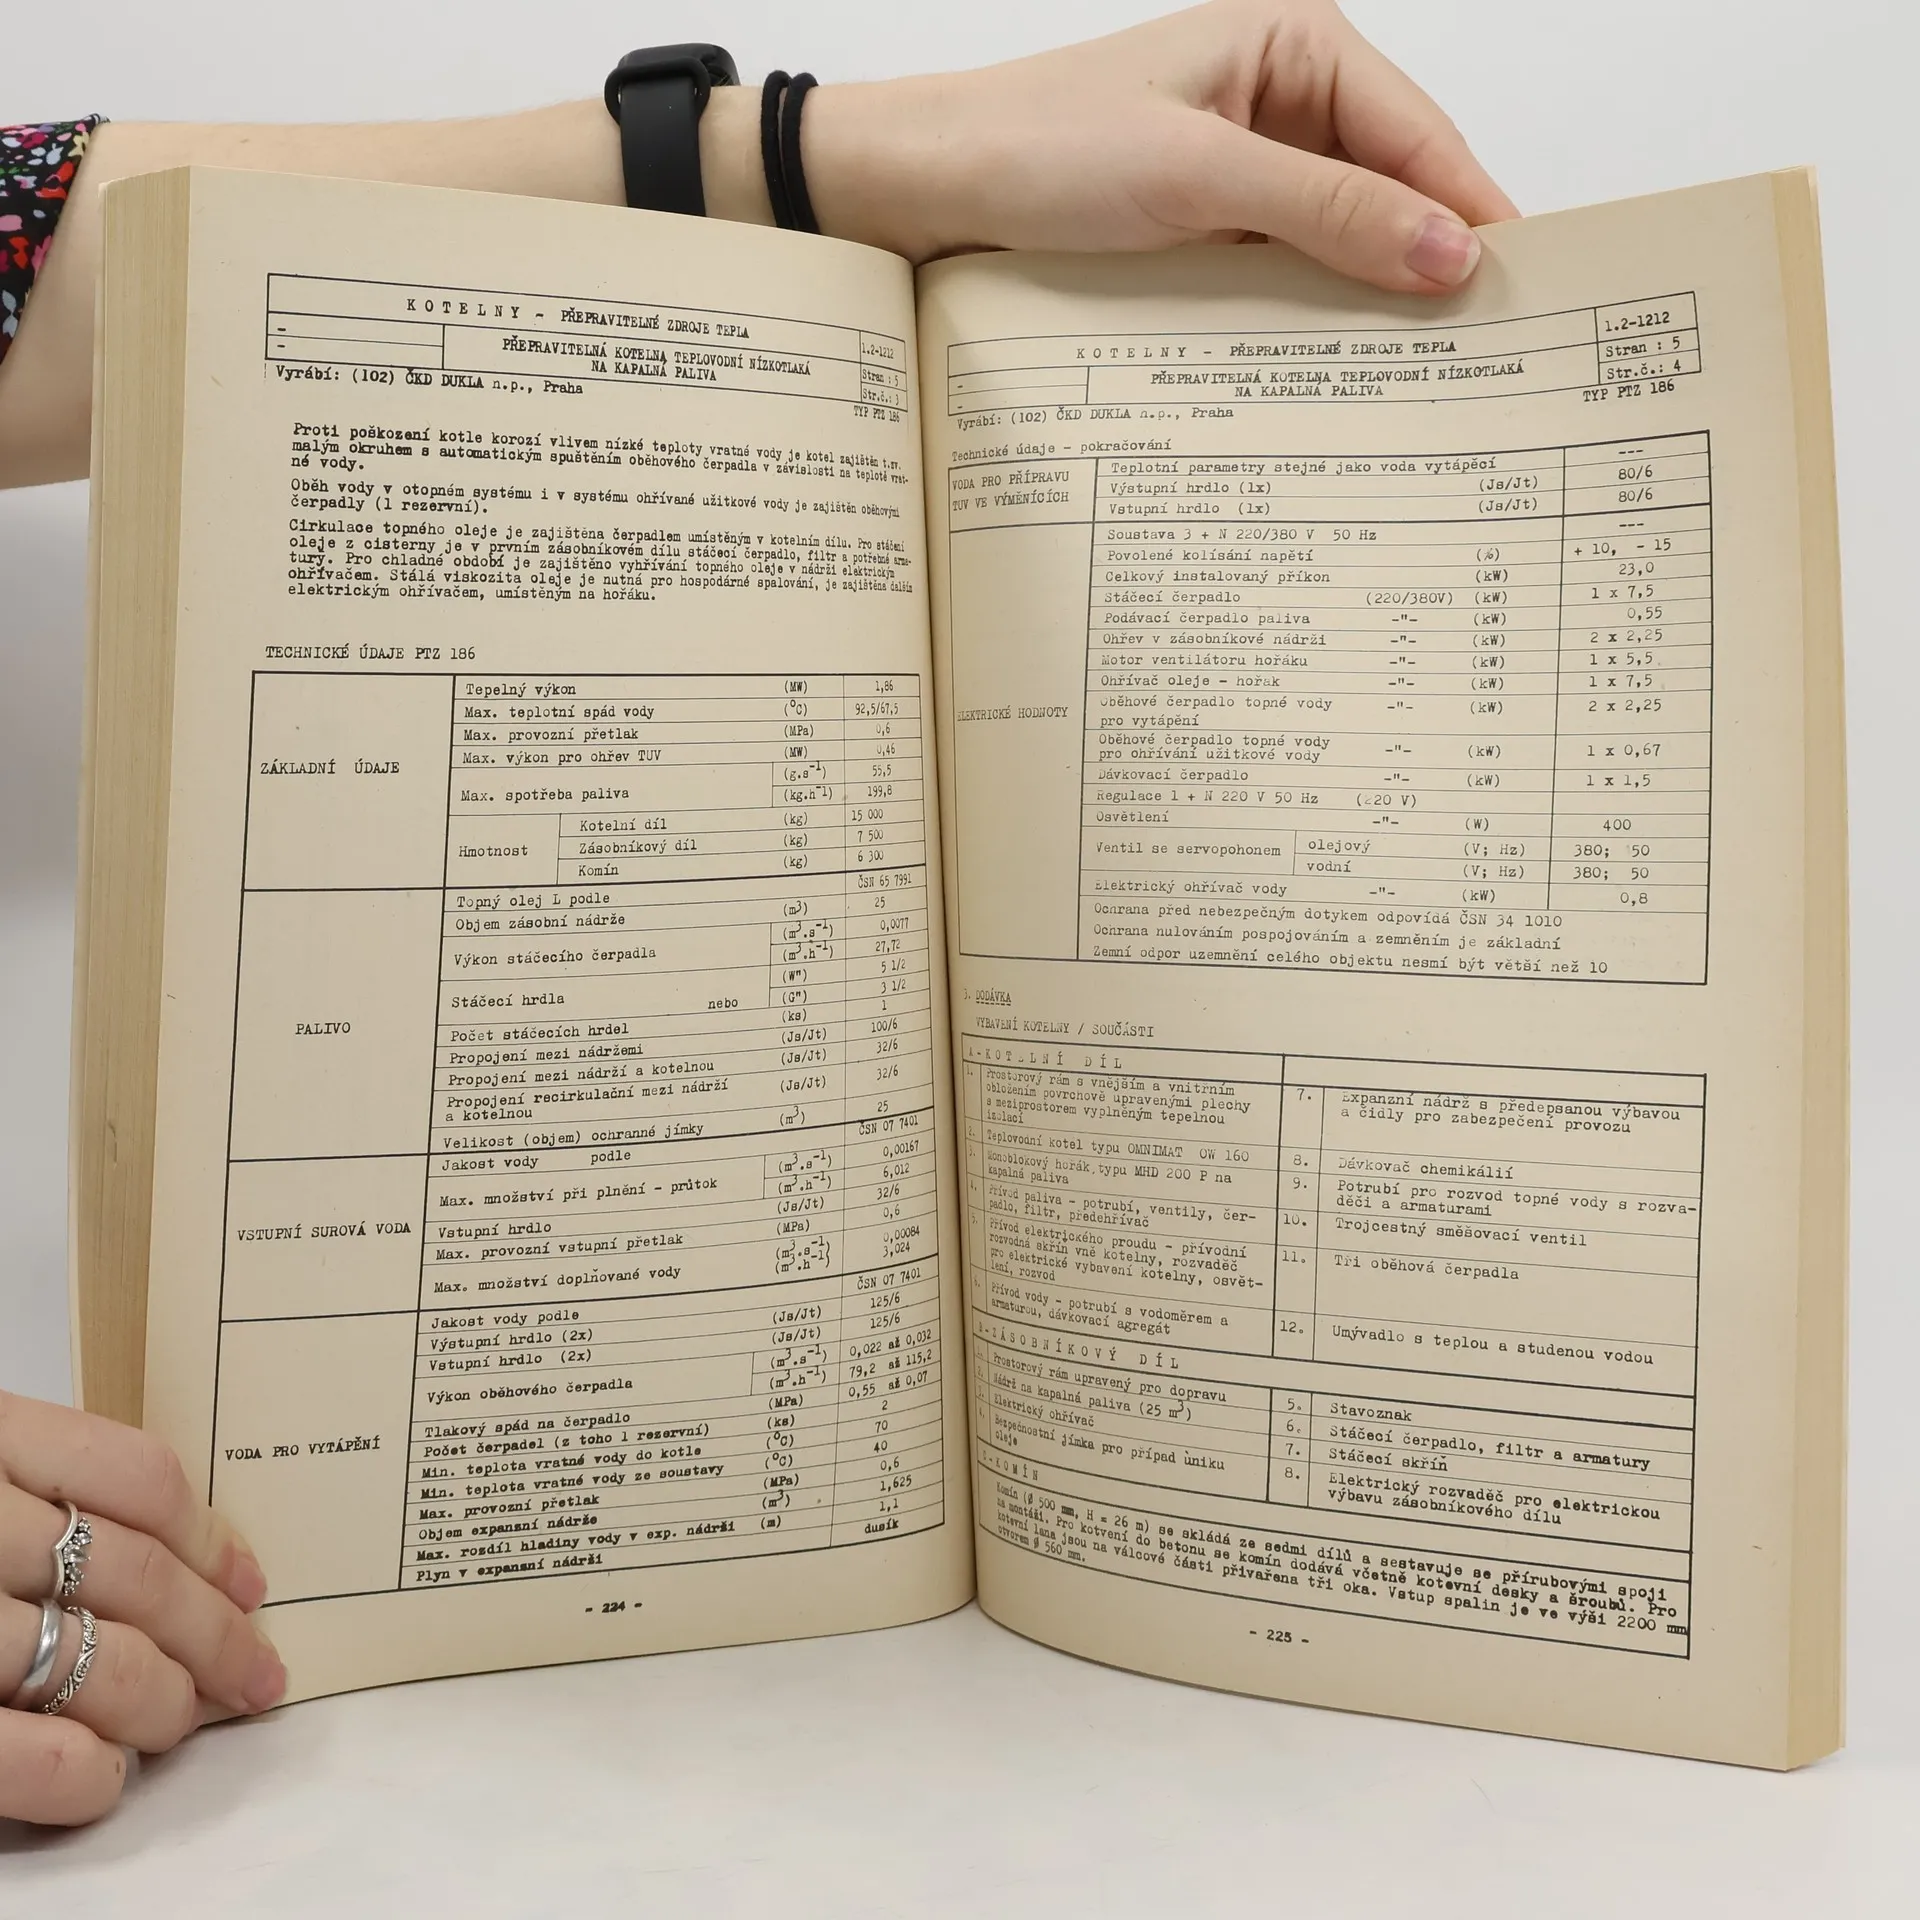 KOTELNY - PŘEPRAVITELNÉ ZDROJE TEPLA
1.2-1212
-
PŘEPRAVITELNÁ KOTELNA TEPLOVODNÍ NÍZKOTLAKÁ
Stran : 5
-
NA KAPALNÁ PALIVA
Str.č.: 3
Vyrábí: (102) ČKD DUKLA n.p., Praha
TYP PTZ 186
Proti poškození kotle korozí vlivem nízké teploty vratné vody je kotel zajištěn t.zv.
malým okruhem s automatickým spuštěním oběhového čerpadla v závislosti na teplotě vrat-
né vody.
Oběh vody v otopném systému i v systému ohřívané užitkové vody je zajištěn oběhovými
čerpadly (1 rezervní).
Cirkulace topného oleje je zajištěna čerpadlem umístěným v kotelním dílu. Pro stáčení
oleje z cisterny je v prvním zásobníkovém dílu stáčecí čerpadlo, filtr a potřebné arma-
tury. Pro chladné období je zajištěno vyhřívání topného oleje v nádrži elektrickým
ohřívačem. Stálá viskozita oleje je nutná pro hospodárné spalování, je zajištěna dalším
elektrickým ohřívačem, umístěným na hořáku.
TECHNICKÉ ÚDAJE PTZ 186
ZÁKLADNÍ ÚDAJE
Tepelný výkon (MW) 1,86
Max. teplotní spád vody (°C) 92,5/67,5
Max. provozní přetlak (MPa) 0,6
Max. výkon pro ohřev TUV (MW) 0,46
Max. spotřeba paliva (g.s⁻¹) 55,5
(kg.h⁻¹) 199,8
Hmotnost Kotelní díl (kg) 15 000
Zásobníkový díl (kg) 7 500
Komín (kg) 6 300
PALIVO
Topný olej L podle ČSN 65 7991
Objem zásobní nádrže (m³) 25
Výkon stáčecího čerpadla (m³.s⁻¹) 0,0077
(m³.h⁻¹) 27,72
Stáčecí hrdla (W") 5 1/2
nebo (G") 3 1/2
Počet stáčecích hrdel (ks) 1
Propojení mezi nádržemi (Js/Jt) 100/6
Propojení mezi nádrží a kotelnou (Js/Jt) 32/6
Propojení recirkulační mezi nádrží
a kotelnou (Js/Jt) 32/6
Velikost (objem) ochranné jímky (m³) 25
VSTUPNÍ SUROVÁ VODA
Jakost vody podle ČSN 07 7401
Max. množství při plnění - průtok (m³.s⁻¹) 0,00167
(m³.h⁻¹) 6,012
Vstupní hrdlo (Js/Jt) 32/6
Max. provozní vstupní přetlak (MPa) 0,6
Max. množství doplňované vody (m³.s⁻¹) 0,00084
(m³.h⁻¹) 3,024
VODA PRO VYTÁPĚNÍ
Jakost vody podle ČSN 07 7401
Výstupní hrdlo (2x) (Js/Jt) 125/6
Vstupní hrdlo (2x) (Js/Jt) 125/6
Výkon oběhového čerpadla (m³.s⁻¹) 0,022 až 0,032
(m³.h⁻¹) 79,2 až 115,2
Tlakový spád na čerpadlo (MPa) 0,55 až 0,07
Počet čerpadel (z toho 1 rezervní) (ks) 2
Min. teplota vratné vody do kotle (°C) 70
Min. teplota vratné vody ze soustavy (°C) 40
Max. provozní přetlak (MPa) 0,6
Objem expanzní nádrže (m³) 1,625
Max. rozdíl hladiny vody v exp. nádrži (m) 1,1
Plyn v expanzní nádrži dusík
- 224 -
KOTELNY - PŘEPRAVITELNÉ ZDROJE TEPLA
1.2-1212
-
PŘEPRAVITELNÁ KOTELNA TEPLOVODNÍ NÍZKOTLAKÁ
Stran : 5
-
NA KAPALNÁ PALIVA
Str.č.: 4
Vyrábí: (102) ČKD DUKLA n.p., Praha
TYP PTZ 186
Technické údaje - pokračování
VODA PRO PŘÍPRAVU
TUV VE VÝMĚNÍCÍCH
Teplotní parametry stejné jako voda vytápěcí ---
Výstupní hrdlo (1x) (Js/Jt) 80/6
Vstupní hrdlo (1x) (Js/Jt) 80/6
ELEKTRICKÉ HODNOTY
Soustava 3 + N 220/380 V 50 Hz ---
Povolené kolísání napětí (%) + 10, - 15
Celkový instalovaný příkon (kW) 23,0
Stáčecí čerpadlo (220/380V) (kW) 1 x 7,5
Podávací čerpadlo paliva -"- (kW) 0,55
Ohřev v zásobníkové nádrži -"- (kW) 2 x 2,25
Motor ventilátoru hořáku -"- (kW) 1 x 5,5
Ohřívač oleje - hořák -"- (kW) 1 x 7,5
Oběhové čerpadlo topné vody
pro vytápění -"- (kW) 2 x 2,25
Oběhové čerpadlo topné vody
pro ohřívání užitkové vody -"- (kW) 1 x 0,67
Dávkovací čerpadlo -"- (kW) 1 x 1,5
Regulace 1 + N 220 V 50 Hz (220 V)
Osvětlení -"- (W) 400
Ventil se servopohonem olejový (V; Hz) 380; 50
vodní (V; Hz) 380; 50
Elektrický ohřívač vody -"- (kW) 0,8
Ochrana před nebezpečným dotykem odpovídá ČSN 34 1010
Ochrana nulováním pospojováním a zemněním je základní
Zemní odpor uzemnění celého objektu nesmí být větší než 10
3. DODÁVKA
VYBAVENÍ KOTELNY / SOUČÁSTI
A-KOTELNÍ DÍL
1. Prostorový rám s vnějším a vnitřním
obložením povrchově upravenými plechy
s meziprostorem vyplněným tepelnou
izolací
2. Teplovodní kotel typu OMNIMAT OW 160
3. Monoblokový hořák typu MHD 200 P na
kapalná paliva
4. Přívod paliva - potrubí, ventily, čer-
padlo, filtr, předehřívač
5. Přívod elektrického proudu - přívodní
rozvodná skříň vně kotelny, rozvaděč
pro elektrické vybavení kotelny, osvět-
lení, rozvod
6. Přívod vody - potrubí s vodoměrem a
armaturou, dávkovací agregát
7. Expanzní nádrž s předepsanou výbavou
a čidly pro zabezpečení provozu
8. Dávkovač chemikálií
9. Potrubí pro rozvod topné vody s rozva-
děči a armaturami
10. Trojcestný směšovací ventil
11. Tři oběhová čerpadla
12. Umývadlo s teplou a studenou vodou
B-ZÁSOBNÍKOVÝ DÍL
1. Prostorový rám upravený pro dopravu
2. Nádrž na kapalná paliva (25 m³)
3. Elektrický ohřívač
4. Bezpečnostní jímka pro případ úniku
oleje
5. Stavoznak
6. Stáčecí čerpadlo, filtr a armatury
7. Stáčecí skříň
8. Elektrický rozvaděč pro elektrickou
výbavu zásobníkového dílu
C-KOMÍN
Komín (Ø 500 mm, H = 26 m) se skládá ze sedmi dílů a sestavuje se přírubovými spoji
na montáži. Pro kotvení do betonu se komín dodává včetně kotevní desky a šroubů. Pro
kotevní lana jsou na válcové části přivařena tři oka. Vstup spalin je ve výši 2200 mm
otvorem Ø 560 mm.
- 225 -